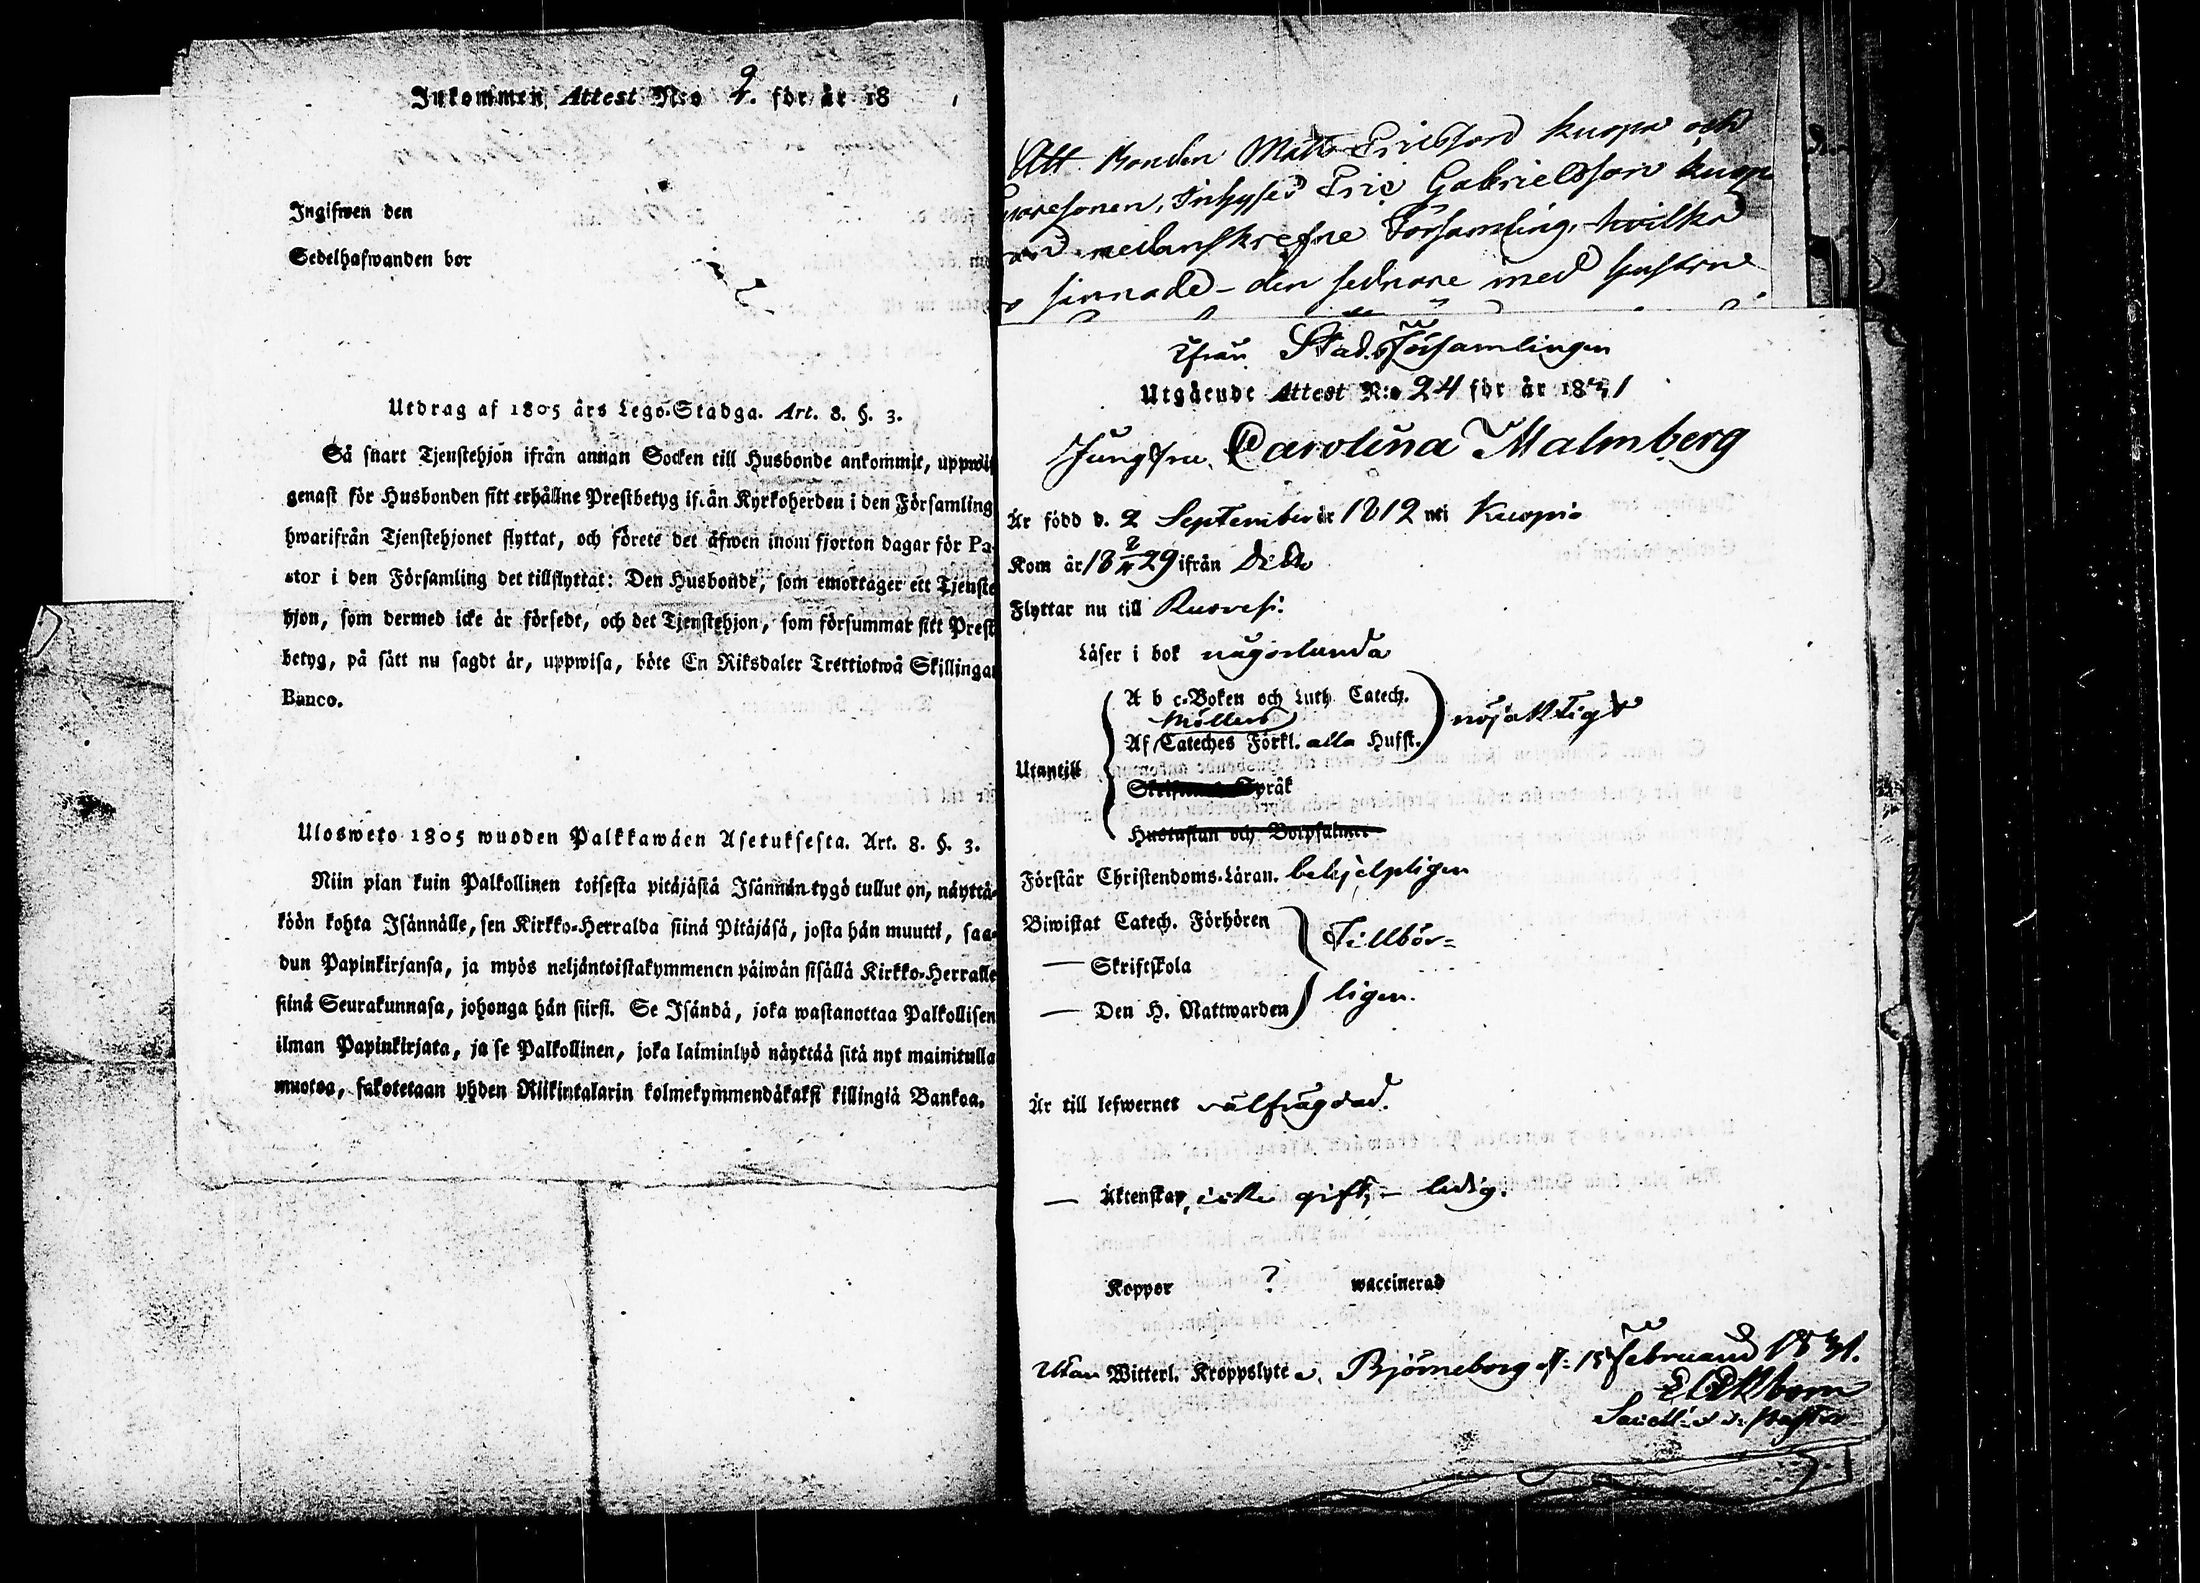 Inkommen Attest N:o 2. för år 18
Ingifwen den
Sedelhafwanden bor
Utdrag af 1805 års Lego-Stadga. Art. 8. §. 3.
Så snart Tjenstehjon ifrån annan Socken till Husbonde ankommit, uppwis
genast för Husbonden sitt erhållne Prestbetyg ifrån Kyrkoherden i den Församling
hwarifrån Tjenstehjonet flyttat, och förete det äfwen inom fjorton dagar för Pa-
stor i den Församling det tillflyttat: Den Husbonde, som emottager ett Tjenste
hjon, som dermed icke är försedt, och det Tjenstehjon, som försummar sitt Prest
betyg, på sätt nu sagdt är, uppwisa, böte En Riksdaler Trettiotwå Skillingar
Banco.
Ulosweto 1805 wuoden Palkkawäen Asetuksesta. Art. 8. §. 3.
Niin pian kuin Palkollinen toisesta pitäjästä Isännän tygö tullut on, näyttä-
köön kohta Isännälle, sen Kirkko-Herralda siinä Pitäjäsä, josta hän muutti, saa-
dun Papinkirjansa, ja myös neljäntoistakymmenen päiwän sisällä Kirkko-Herralle
siinä Seurakunnasa, johonga hän siirsi. Se Isändä, joka wastanottaa Palkollisen
ilman Papinkirjata, ja se Palkollinen, joka laiminlyö näyttää sitä nyt mainitulla
muotoa, sakotetaan yhden Riikintalarin kolmekymmendäkaksi killingiä Bankoa.
Att Bonden Matts Ericsson Kuopa och
Inhyses Eric Gabrielsson Kuop
nedanskrefne Församling, hvilka
sinnade - den sednare med hustrue
Ifrån Stads Församlingen
Utgående Attest N:o 24 för år 1831
Jungfru Carolina Malmberg
Är född d. 2 September år 1812 uti Kuopio
Kom år 18 29 ifrån
Flyttar nu till Ruovesi.
Läser i bok någorlunda
A b c-Boken och Luth. Catech.
Möllers
Af Cateches Förkl. alla Hufst. nöjaktigt
Utantill
Språk
Hustaflan och Botpsalmer
Förstår Christendoms-Läran. behjelpligen
Biwistat Catech. Förhören Tillbör=
— Skriftskola
— Den H. Nattwarden ligen.
Är till lefwernet välfrägdad.
— Äktenskap, icke gift, - ledig.
Koppor ? waccinerad
Utan Witterl. Kroppslyte. Björneborg d. 15 Februarii 1831.